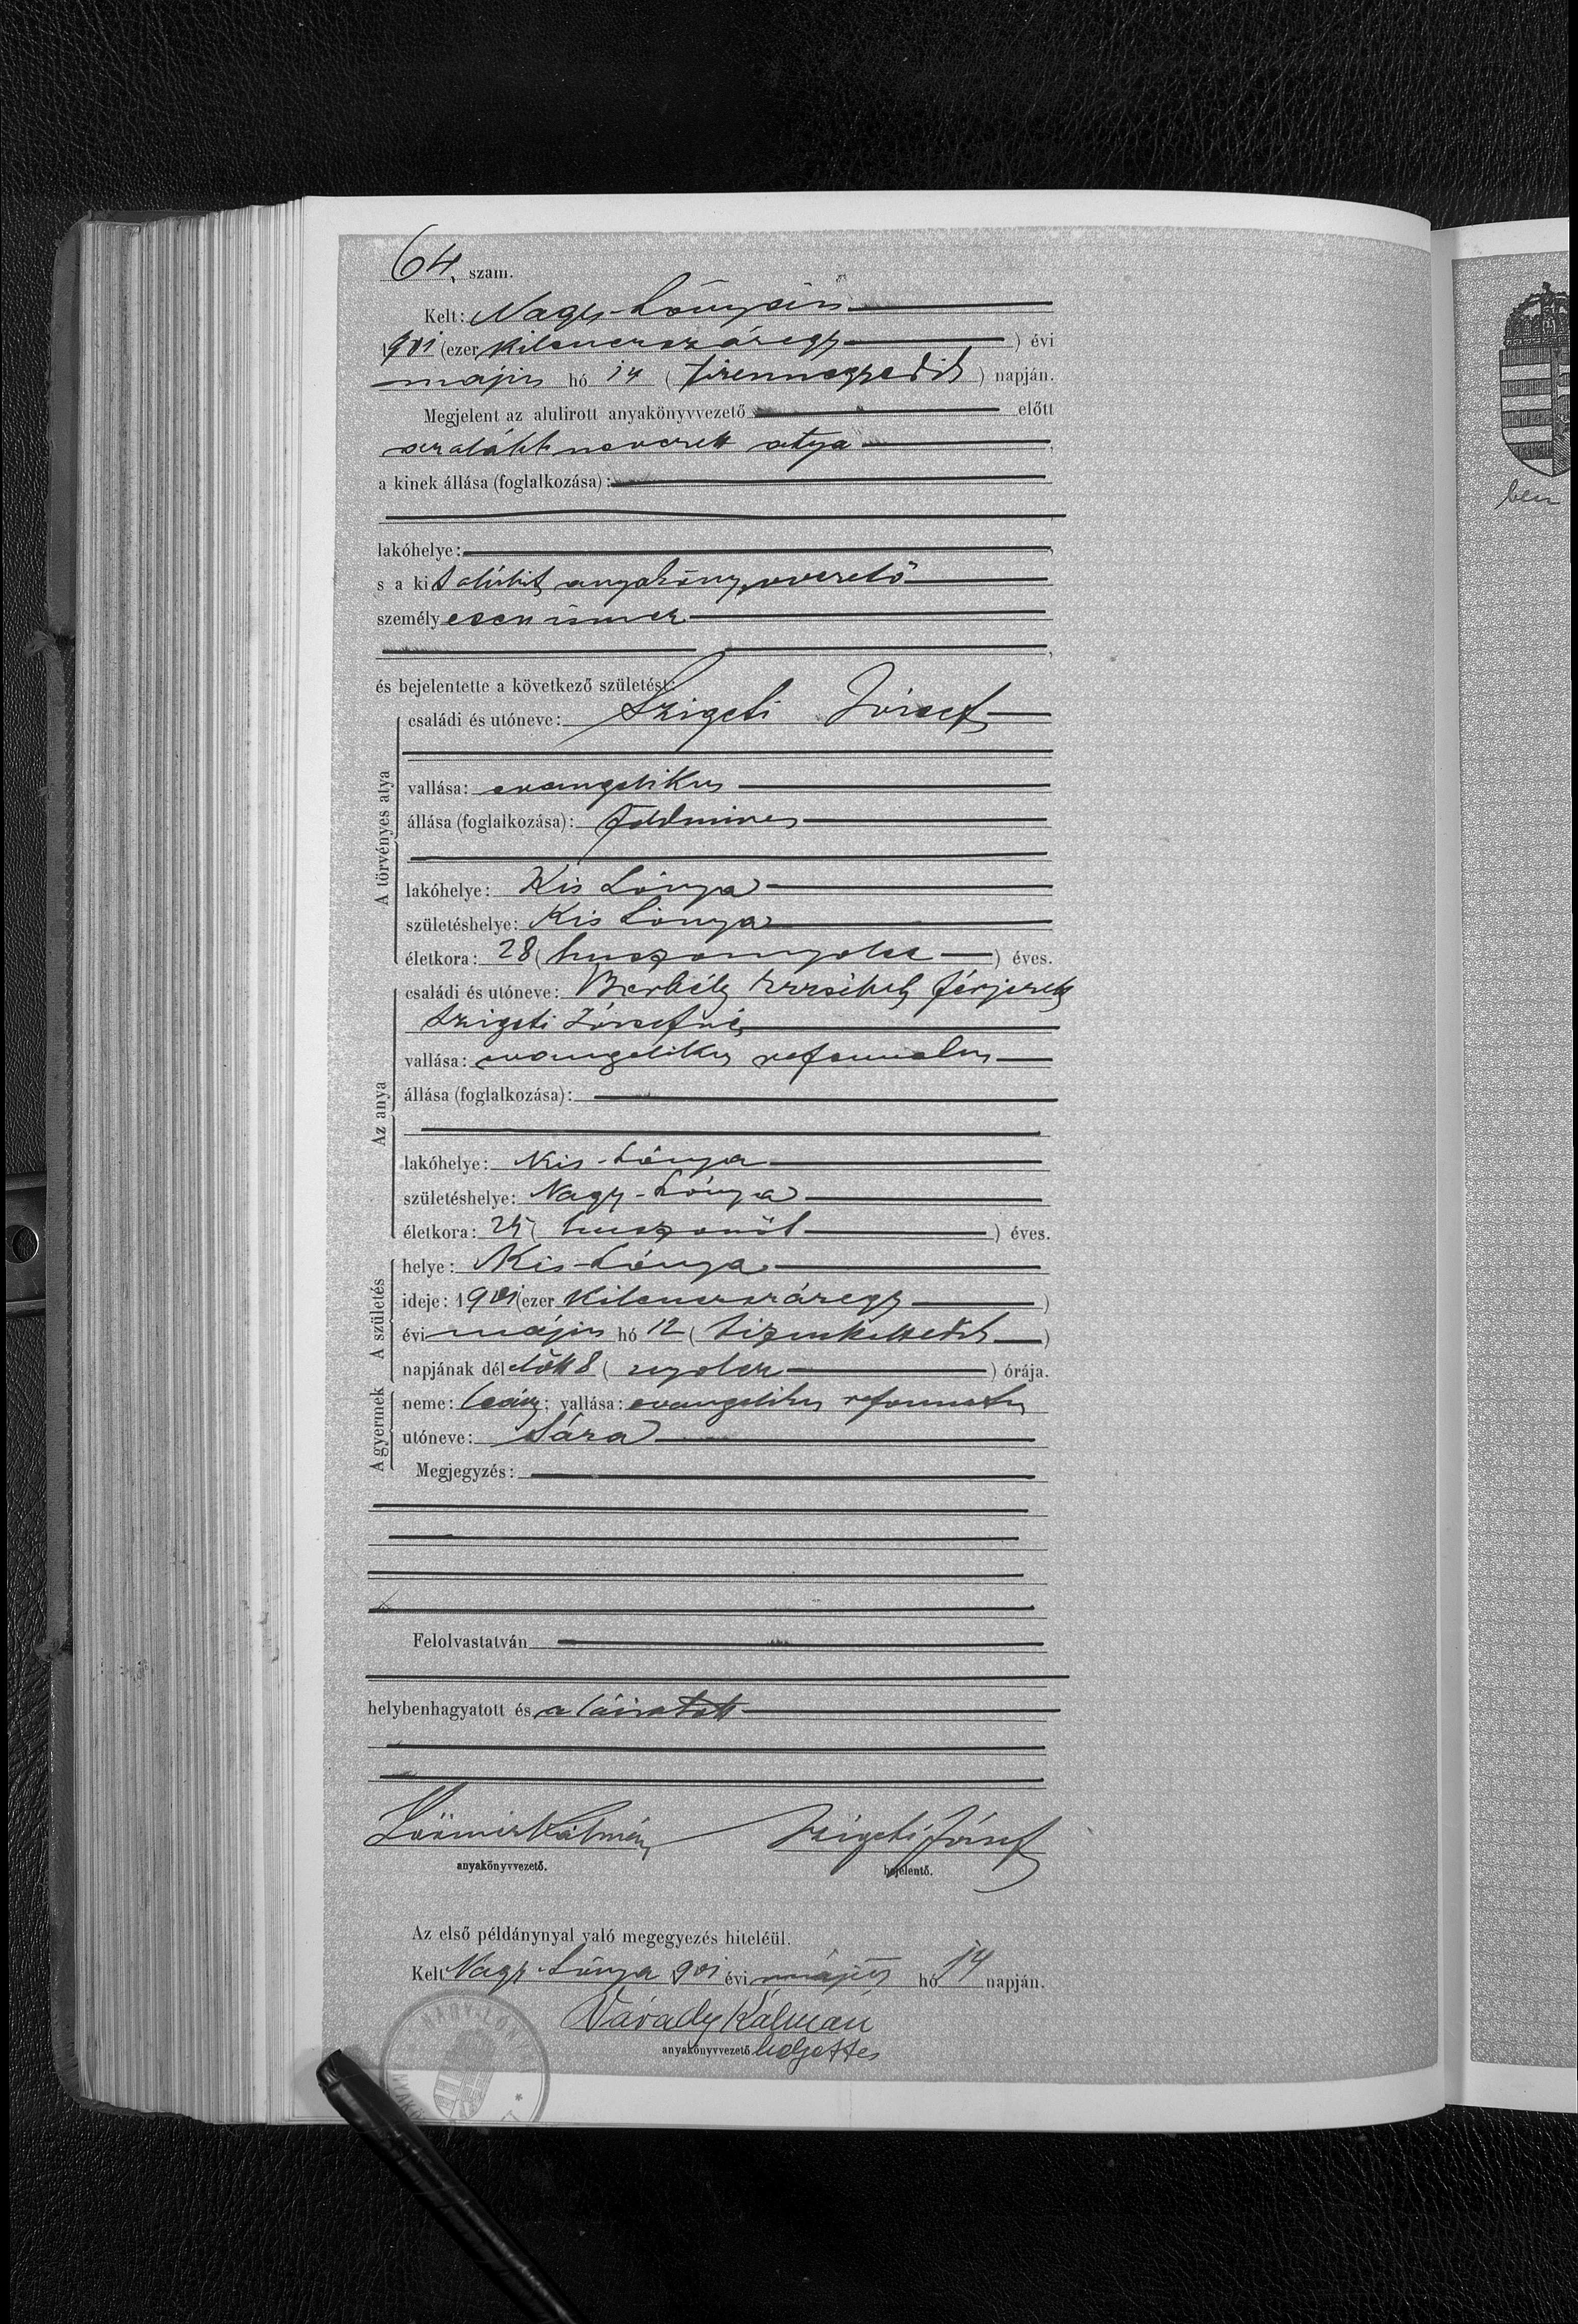 64. szám.
Kelt: Nagy-Lónyán
1901 (ezer kilenczszázegy) évi
május hó 14 (tizennegyedik) napján.
Megjelent az alulirott anyakönyvvezető előtt
az alább nevezett atya,
a kinek állása (foglalkozása):
lakóhelye:
s a kit alulirt anyakönyvvezető
személyesen ismer
és bejelentette a következő születést:
A törvényes atya
családi és utóneve: Szigeti József
vallása: evangelikus
állása (foglalkozása): földmives
lakóhelye: Kis Lónya
születéshelye: Kis Lónya
életkora: 28 (huszonnyolcz) éves.
Az anya
családi és utóneve: Borbély Erzsébet férjezett
Szigeti Józsefné
vallása: evangelikus reformatus
állása (foglalkozása):
lakóhelye: Kis-Lónya
születéshelye: Nagy-Lónya
életkora: 25 (huszonöt) éves.
A születés
helye: Kis-Lónya
ideje: 1901 (ezer kilenczszázegy)
évi május hó 12 (tizenkettedik)
napjának délelőtt 8 (nyolcz) órája.
A gyermek
neme: leány; vallása: evangelikus reformatus
utóneve: Sára
Megjegyzés:
Felolvastatván
helybenhagyatott és aláiratott
Kálmán Szigeti József
anyakönyvvezető. bejelentő.
Az első példánynyal való megegyezés hiteléül.
Kelt Nagy-Lónya 901 évi május hó 14 napján.
Várady Kálmán
anyakönyvvezető helyettes
NAGY-LÓNYA
ben